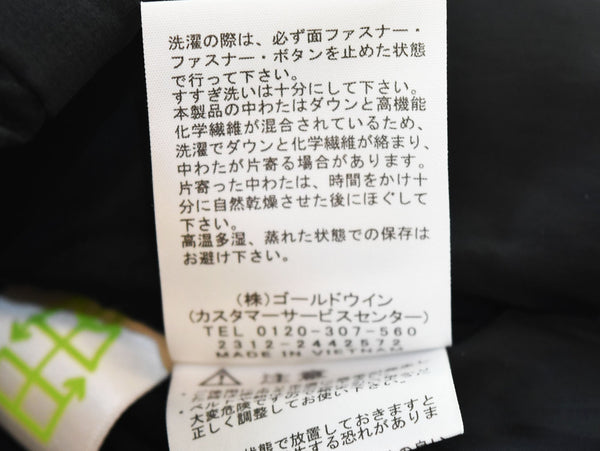 洗濯の際は、必ず面ファスナー・
ファスナー・ボタンを止めた状態
で行って下さい。
すすぎ洗いは十分にして下さい。
本製品の中わたはダウンと高機能
化学繊維が混合されているため、
洗濯でダウンと化学繊維が絡まり、
中わたが片寄る場合があります。
片寄った中わたは、時間をかけ十
分に自然乾燥させた後にほぐして
下さい。
高温多湿、蒸れた状態での保存は
お避け下さい。
(株)ゴールドウイン
(カスタマーサービスセンター)
TEL 0120-307-560
2312-2442572
MADE IN VIETNAM
注意
ベルト
大変危険ですので
正しく調整してお使い下さい。
状態で放置しておきますと
する恐れがありま